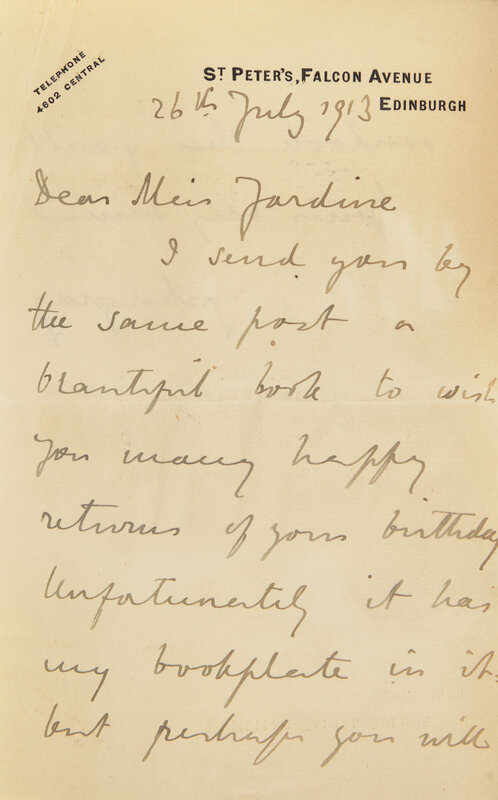 TELEPHONE
4602 CENTRAL
ST PETER'S, FALCON AVENUE
EDINBURGH
26th July 1913
Dear Miss Jardine
I send you by
the same post a
beautiful book to wish
you many happy
returns of your birthday
Unfortunately it has
my bookplate in it.
but perhaps you will